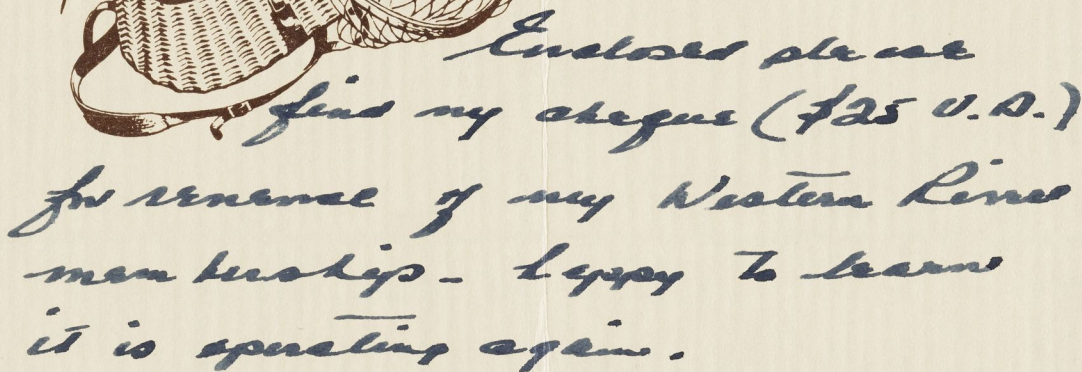 Enclosed please
find my cheque ($25 U.S.)
for renewal of my Western River
membership - happy to learn
it is operating again.